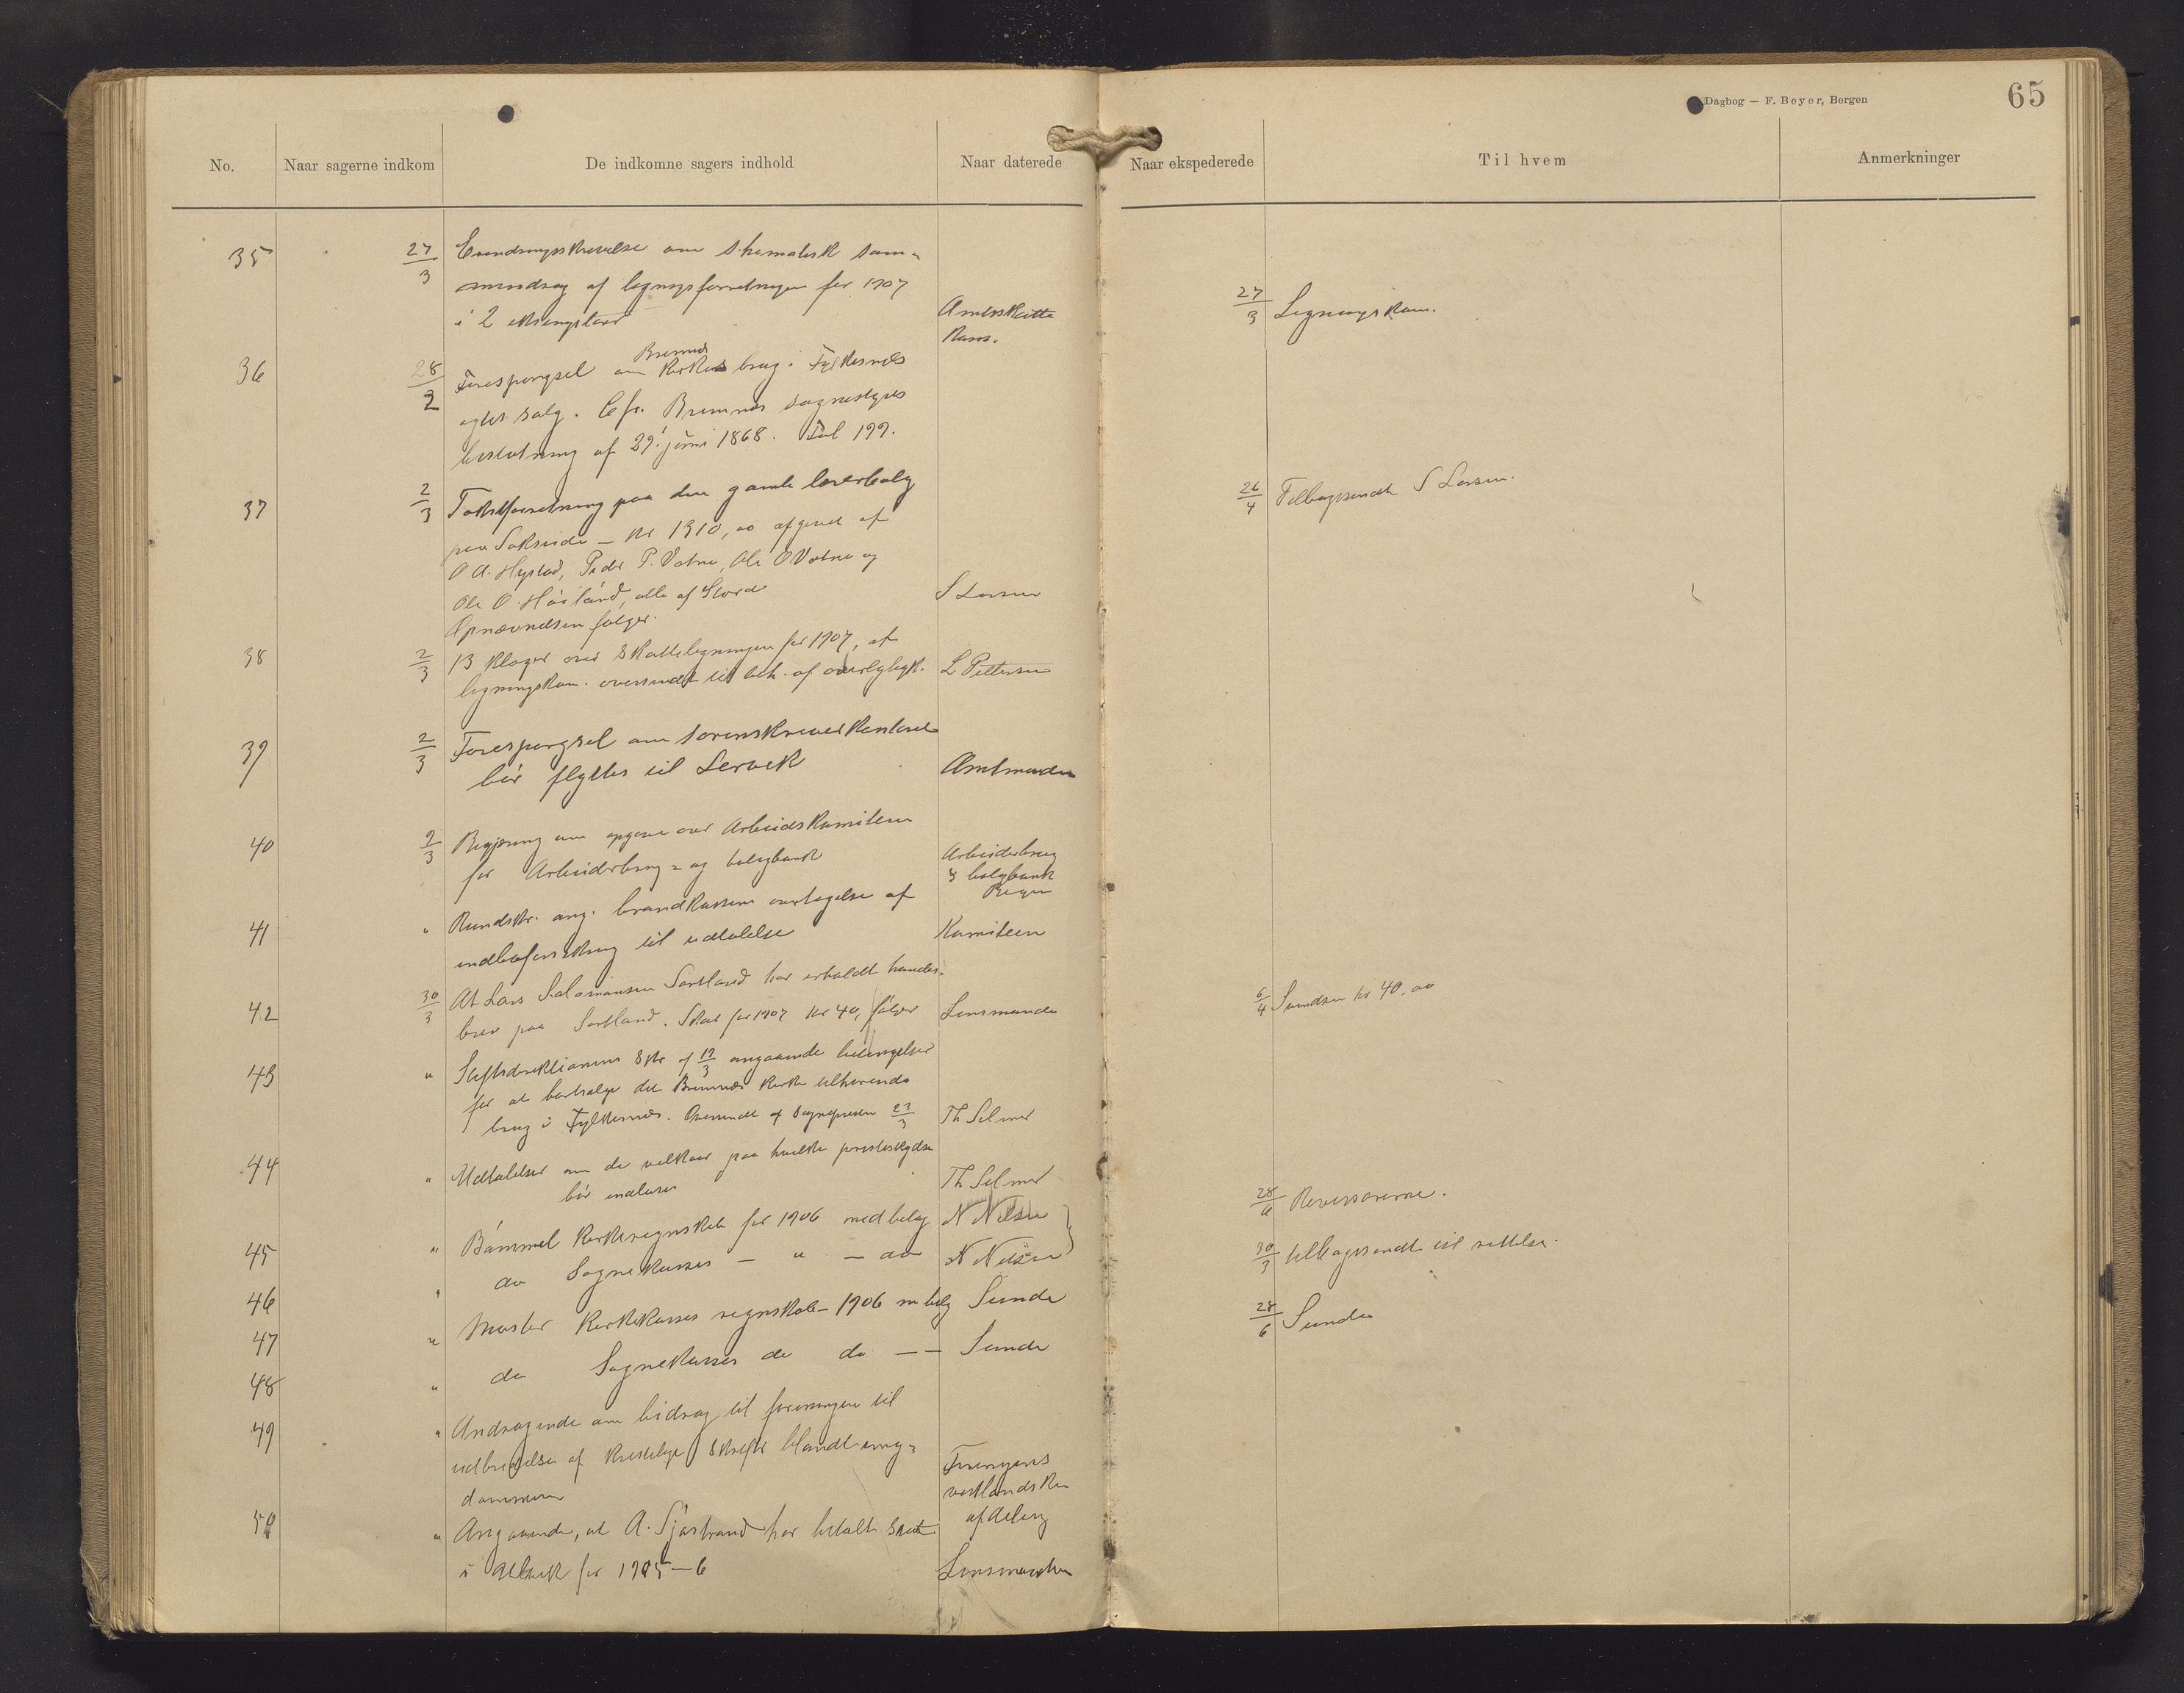 Dagbog — F. Beyer, Bergen
65
No.
Naar sagerne indkom
De indkomne sagers indhold
Naar daterede
Naar ekspederede
Til hvem
Anmerkninger
35 27/3 om skematisk sam-
mendrag af ligningsforretningen for 1907
i 2 eksemplar
Amtsskatte
Kom.
27/3 Ligningskom.
36 28/2 Forespørgsel om Bremnes kirkes brug i Fylkesnes
salg. Cfr. Bremnes sognestyres
beslutning af 29. juni 1868. 199.
37 2/3 Takstforretning paa den gamle lærerbolig
paa – kr 1310,00 afgivet af
O A. Hystad, Peder P. Vatne, Ole O Vatne og
Ole O. Høiland, alle af Stord
Opnævnelsen følger.
S Larsen
26/4 Tilbagesendt S Larsen.
38 2/3 13 klager over skatteligningen for 1907, af
ligningskom. oversendt til beh. af overlign.
L Pettersen
39 2/3 Forespørgsel om sorenskriverkontoret
bør flyttes til Lervik
Amtmanden
40 2/3 Begjæring om opgave over Arbeidskomiteen
for Arbeiderbrug- og boligbank
Arbeiderbrug
& boligbank
Bergen
41 " Rundskr. ang. brandkassens overtagelse af
indboforsikring til udtalelse
Komiteen
42 30/3 At Lars Salomonsen Sortland har erholdt handels-
brev paa Sortland. Skat for 1907 kr 40, følger
Lensmanden
6/4 Sunden kr 40.00
43 " Stiftsdirektionens Skr af 19/3 angaaende betingelser
for at bortsælge det Bremnes kirke tilhørende
brug i Fylkesnes. Oversendt af Sognepresten 23/3
Th Selmer
44 " Udtalelser om de vilkaar paa hvilke
bør indløses
Th Selmer
45 " Bømmel kirkeregnskab for 1906 med bilag
N Nilsen
28/6 Revisorerne.
" do Sognekasses — " — do
N Nilsen
30/3 tilbagesendt til rettelse.
46
" Moster Kirkekasses regnskab 1906 m bilag
Sunde
28/6 Sunde
47
" do Sognekasses do do — —
Sunde
48
49 " Andragende om bidrag til foreningen til
udbredelse af kristelige Skrifter blandt ung-
dommen
Foreningens
vestlandske
afdeling
50 " Angaaende, at A. Sjøstrand har betalt skat
i for 1905—6
Lensmanden